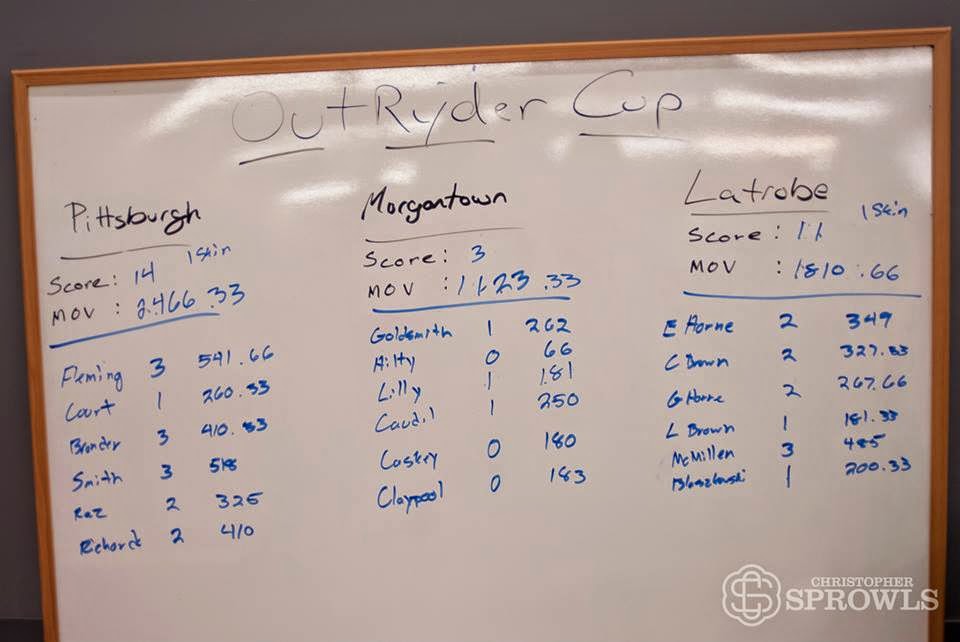 OutRyder Cup
Pittsburgh
1 Skin
Score: 14
MOV : 2466.33
Fleming 3 541.66
Court 1 260.33
Bronder 3 410.33
Smith 3 518
Raz 2 325
Richard 2 410
Morgantown
Score: 3
MOV : 1123.33
Goldsmith 1 262
Hilty 0 66
Lilly 1 181
Caudil 1 250
Caskey 0 180
Claypool 0 183
Latrobe
1 Skin
Score: 11
MOV : 1810.66
E Horne 2 349
C Brown 2 327.33
G Horne 2 267.66
L Brown 1 181.33
McMillen 3 485
1 200.33
CHRISTOPHER
SPROWLS